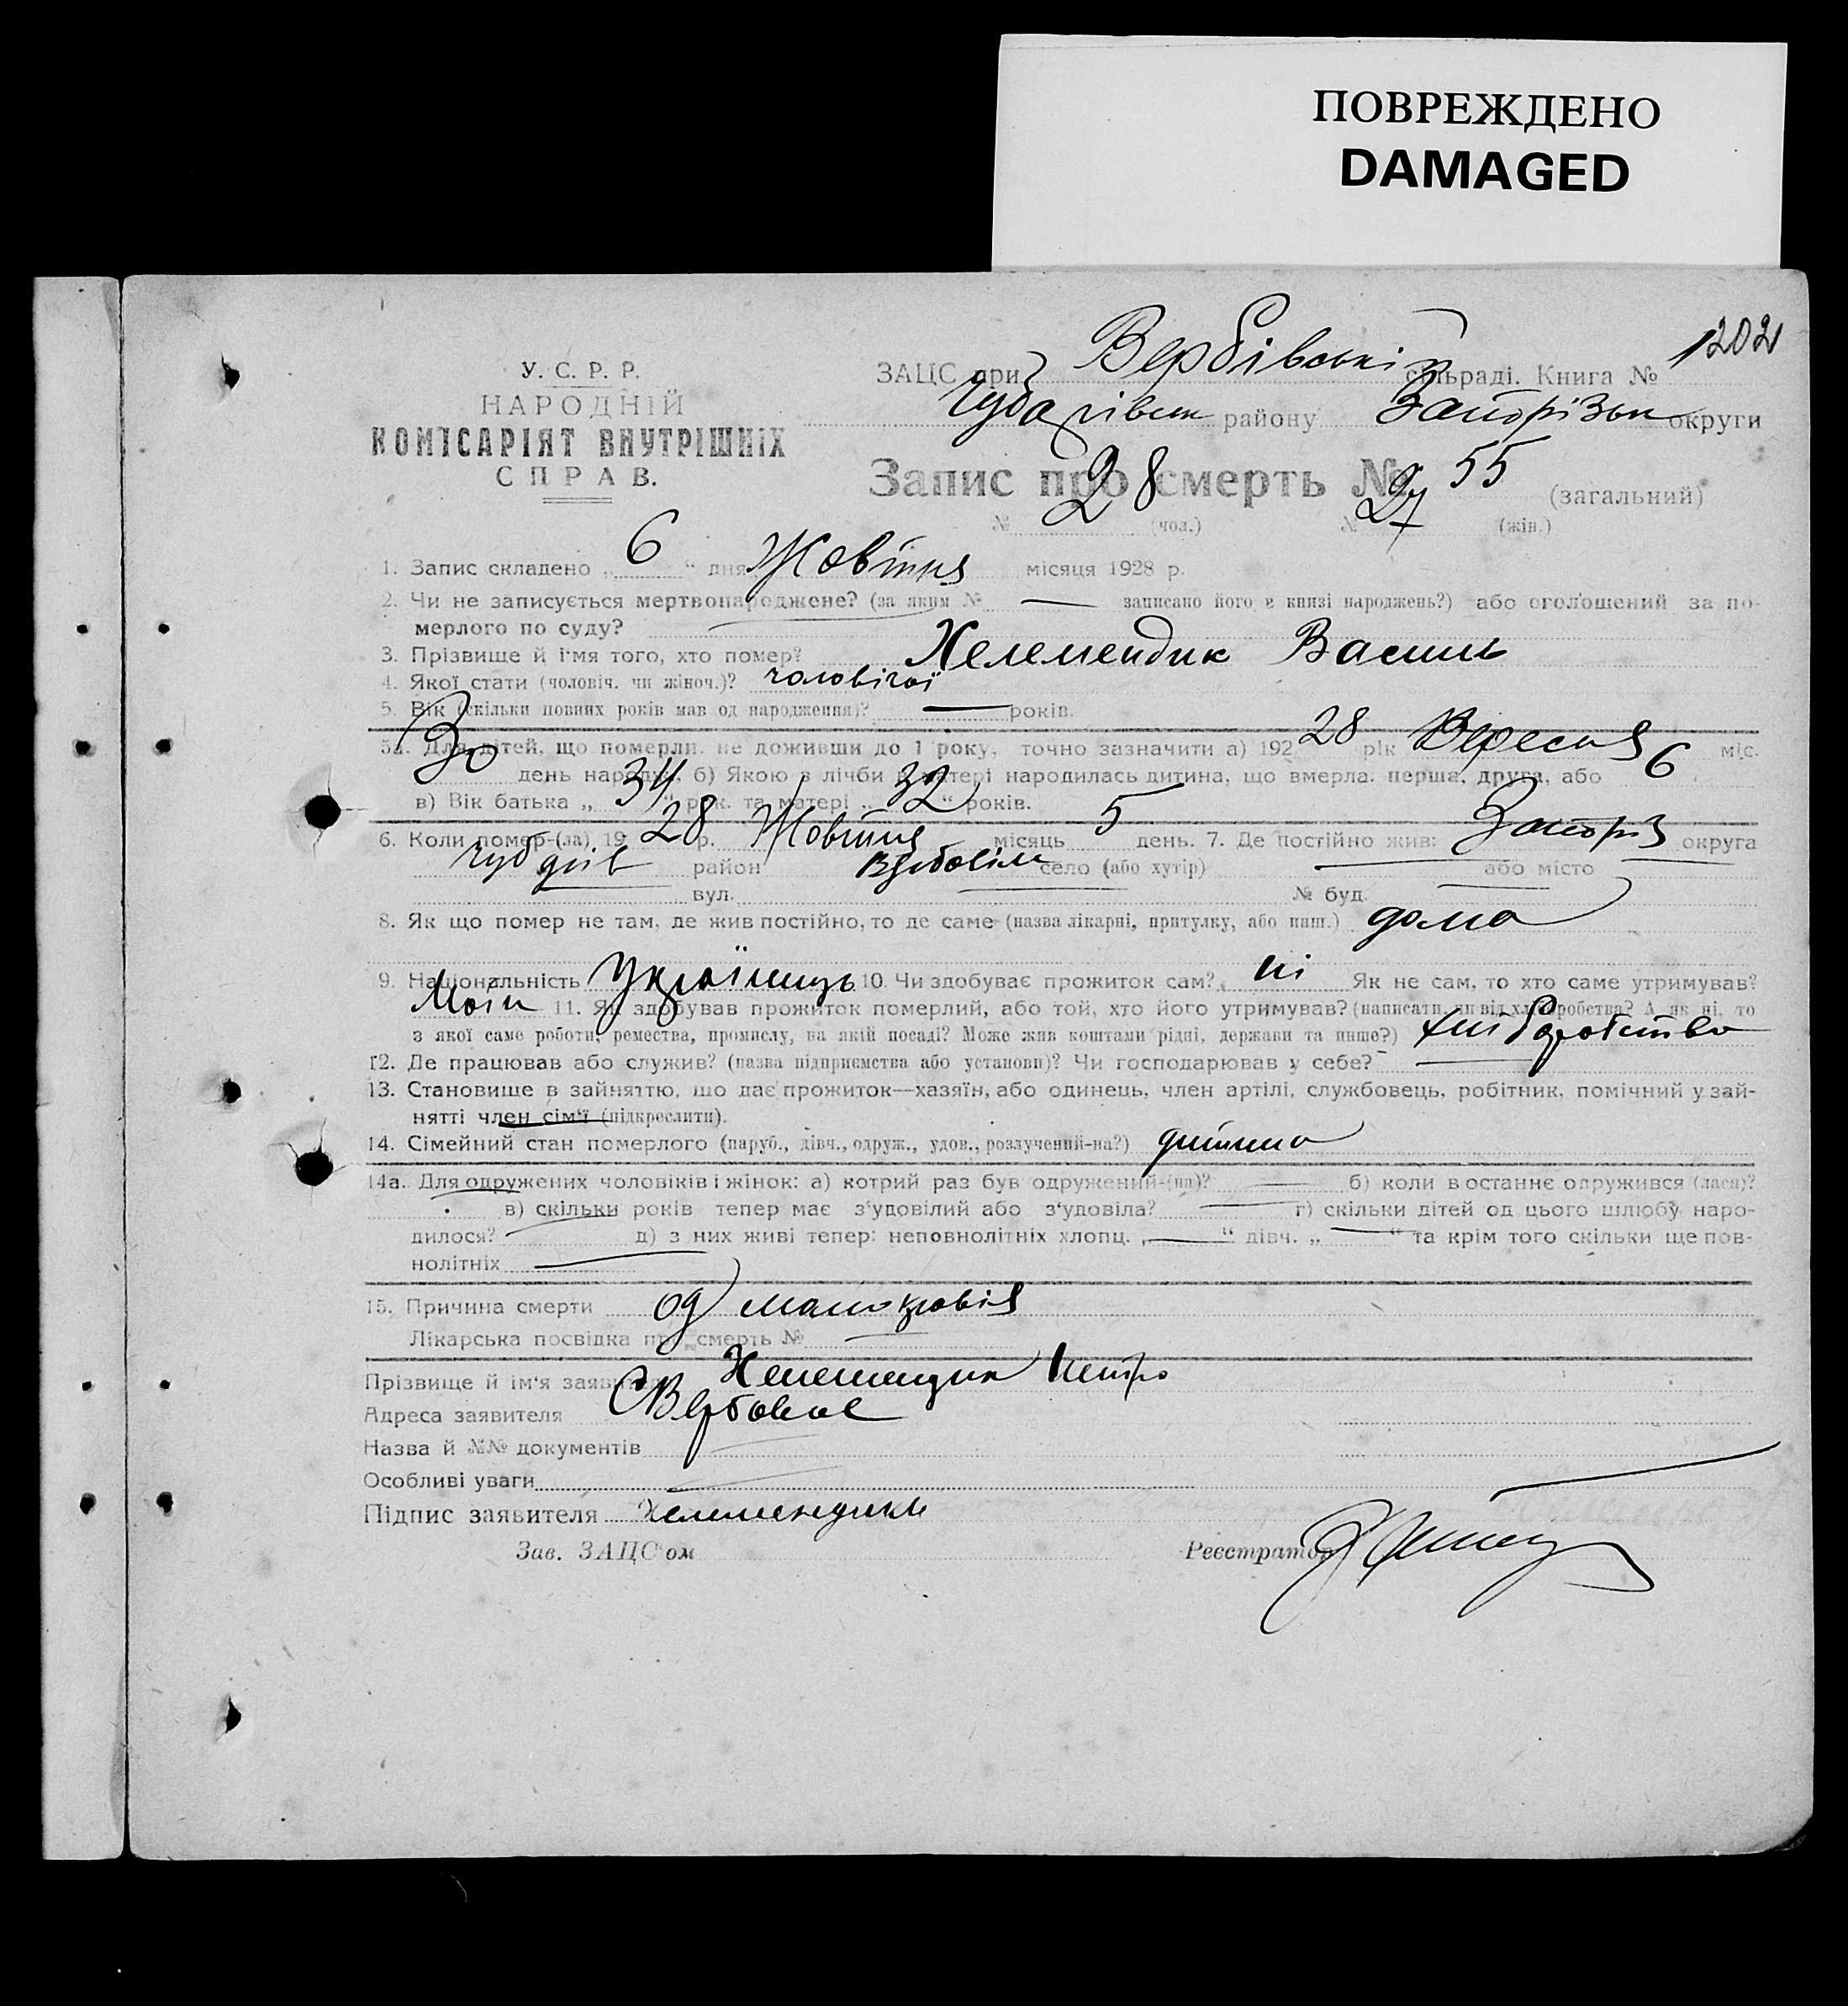 ПОВРЕЖДЕНО
DAMAGED
1202
У. С. Р. Р.
НАРОДНІЙ
КОМІСАРІЯТ ВНУТРІШНІХ
СПРАВ.
ЗАЦС при Вербівській сільраді. Книга №
району Запорізьк округи
Запис про смерть № 55 (загальний)
№ 28 (чол.) № 27 (жін.)
1. Запис складено „ 6 " дня Жовтня місяця 1928 р.
2. Чи не записується мертвонароджене? (за яким № — записано його в книзі народжень?) або оголошений за по-
мерлого по суду?
3. Прізвище й ім'я того, хто помер? Келемендик Василь
4. Якої стати (чоловіч. чи жіноч.)? чоловічої
5. Вік (скільки повних років мав од народження)? — років.
5а. Для дітей, що померли, не доживши до 1 року, точно зазначити а) 192 28 рік Вересня міс.
30 день народж. б) Якою з лічби в матері народилась дитина, що вмерла: перша, друга, або 6
в) Вік батька „ 34 " рок. та матері „ 32 " років.
6. Коли помер-(ла) 19 28 р. Жовтня місяць 5 день. 7. Де постійно жив: Запоріз округа
район село (або хутір) — або місто —
вул. — № буд. —
8. Як що помер не там, де жив постійно, то де саме (назва лікарні, притулку, або инш.) дома
9. Національність Українець 10. Чи здобуває прожиток сам? ні Як не сам, то хто саме утримував?
11. Як здобував прожиток померлий, або той, хто його утримував? (написати, чи від хліборобства? А як ні, то
з якої саме роботи, ремества, промислу, на якій посаді? Може жив коштами рідні, держави та инше?) хліборобство
12. Де працював або служив? (назва підприємства або установи)? Чи господарював у себе? —
13. Становище в зайняттю, що дає прожиток—хазяїн, або одинець, член артілі, службовець, робітник, помічний у зай-
нятті член сім'ї (підкреслити).
14. Сімейний стан померлого (паруб., дівч., одруж., удов., розлучений-на?) дитина
14а. Для одружених чоловіків і жінок: а) котрий раз був одружений-(на)? — б) коли в останнє одружився (лася)?
в) скільки років тепер має з'удовілий або з'удовіла? — г) скільки дітей од цього шлюбу наро-
дилося? — д) з них живі тепер: неповнолітніх хлопц. „ — " дівч. „ — " та крім того скільки ще пов-
нолітніх —
15. Причина смерти од малокровія
Лікарська посвідка про смерть № —
Прізвище й ім'я заявителя Келемендик Петро
Адреса заявителя С Вербовое
Назва й №№ документів —
Особливі уваги —
Підпис заявителя Келемендик
Зав. ЗАЦС'ом Реєстратор